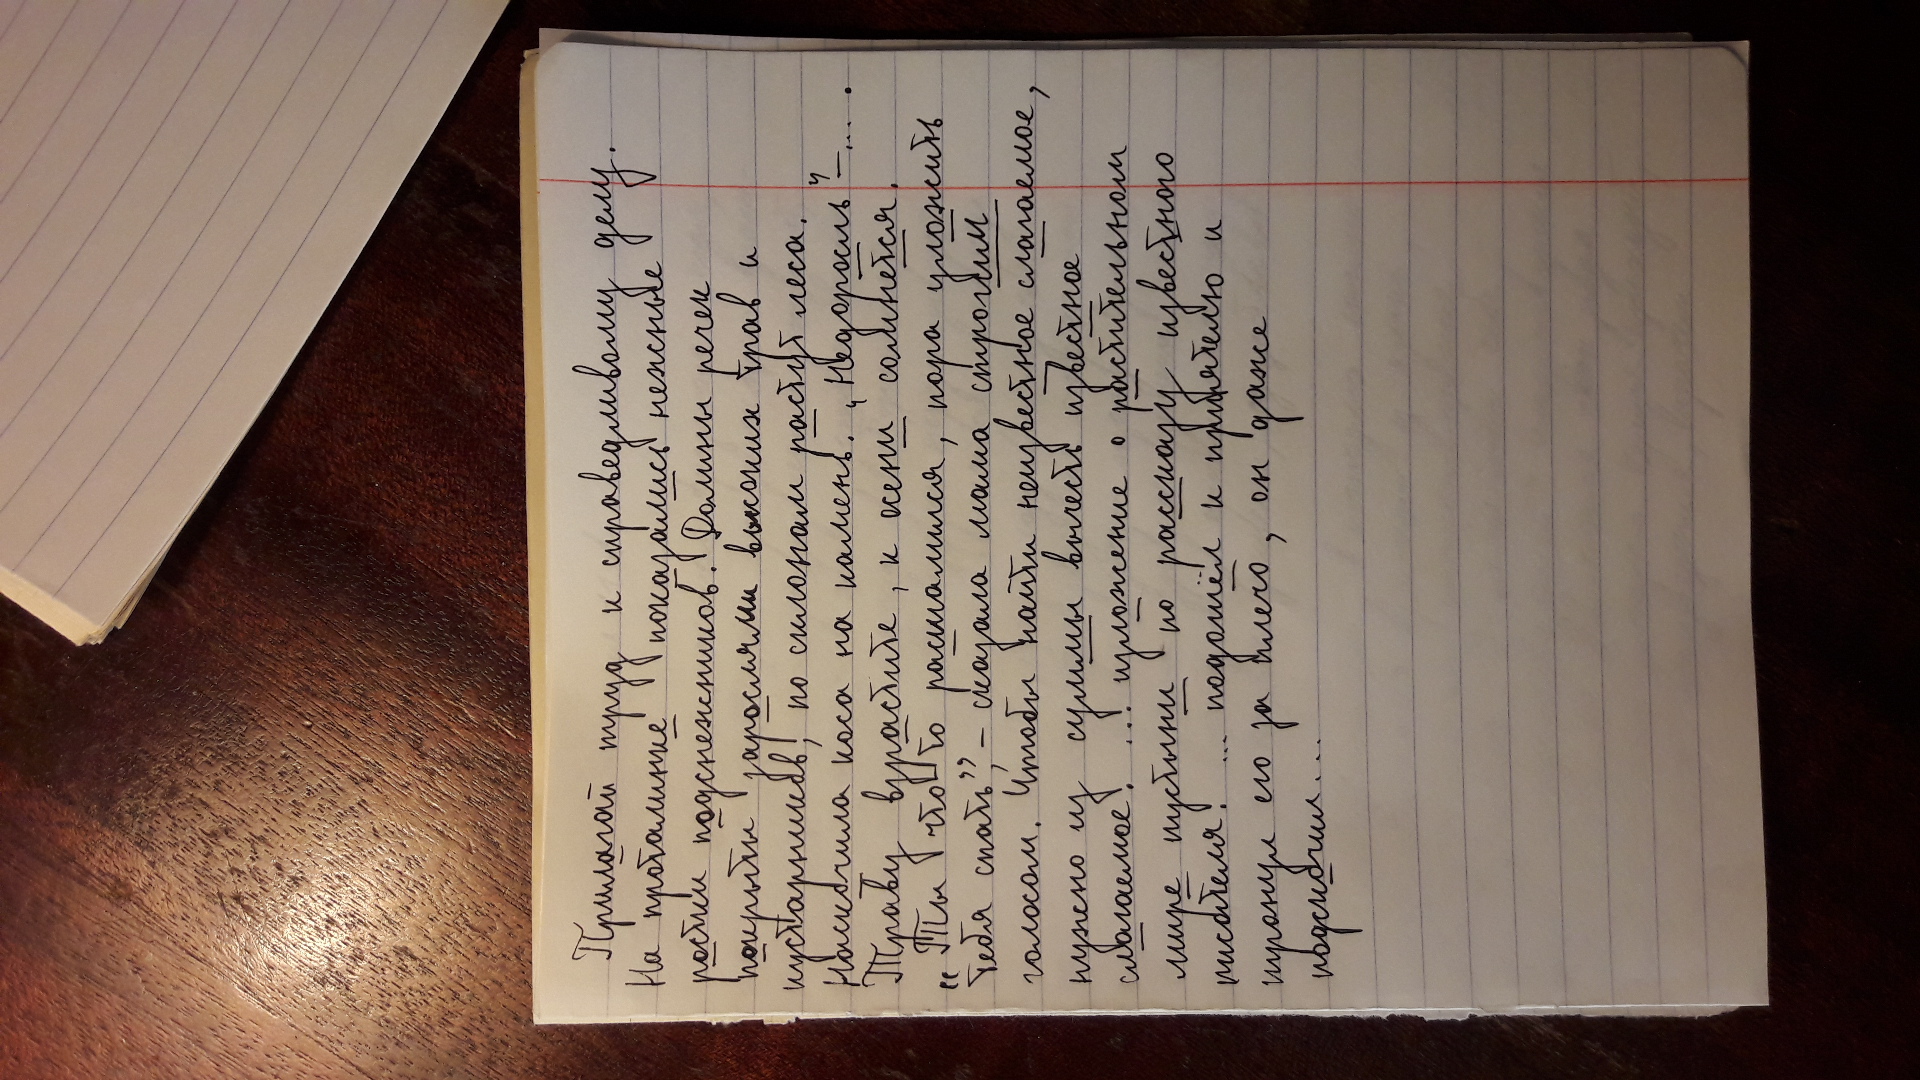 Прилагай труд к справедливому делу.
На проталине показались нежные
ростки подснежников. Долины речек
покрыты зарослями высоких трав и
кустарников, по склонам растут леса.
Наскочила коса на камень. "Недоросль" – ... .
Траву вырастите, к осени сомнётся.
"Ты что-то расшалился, пора уложить
тебя спать", – сказала мама строгим
голосом. Чтобы найти неизвестное слагаемое,
нужно из суммы вычесть известное
слагаемое. ... изложение о растительном
мире пустыни по рассказу известного
писателя. ... подошёл к приятелю и
тронул его за плечо, он даже
подскочил...